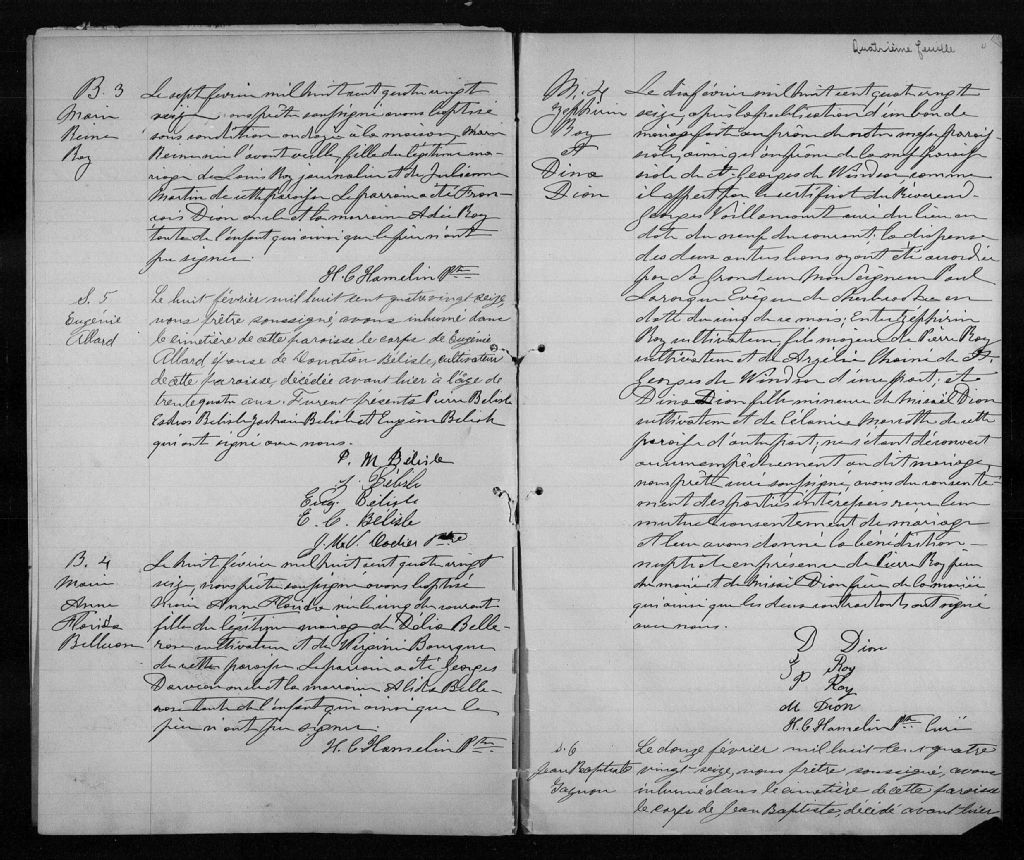 B. 3
Marie
Reine
Roy
Le sept février mil huit cent quatre vingt
seize, nous prêtre soussigné avons baptisé
sous condition ondoyé à la maison, Marie
Reine née l'avant veille, fille du légitime ma-
riage de Louis Roy journalier et de Julienne
Martin de cette paroisse. Le parrain a été Fran-
cois Dion oncle et la marraine Adée Roy
tante de l'enfant qui ainsi que le père n'ont
pu signer.
H. C Hamelin Ptre
S. 5
Eugénie
Allard
Le huit février mil huit cent quatre vingt seize
nous prêtre soussigné, avons inhumé dans
le cimetière de cette paroisse le corps de Eugénie
Allard épouse de Donation Bélisle, cultivateur
de cette paroisse, décédée avant hier à l'âge de
trente quatre ans. Furent présents Pierre Bélisle
Esdras Bélisle Bélisle et Eugène Bélisle
qui ont signé avec nous.
P. M Bélisle
J. Bélisle
Eug. Bélisle
E. C. Bélisle
J. M. V. Codier Ptre
B. 4
Marie
Anne
Florida
Bellerose
Le huit février mil huit cent quatre vingt
seize, nous prêtre soussigné avons baptisé
Marie Anne Florida née le cinq du courant
fille du légitime mariage de Délia Belle-
rose cultivateur et de Virginie Bourque
de cette paroisse. Le parrain a été Georges
Darveau oncle et la marraine Alida Belle-
rose tante de l'enfant qui ainsi que le
père n'ont pu signer.
H. C. Hamelin Ptre
Quatrième feuille
M. 4
Zéphirin
Roy
et
Dina
Dion
Le dix février mil huit cent quatre vingt
seize, après la publication d'un ban de
mariage fait au prône de notre messe parois-
siale, ainsi qu'au prône de la messe parois-
siale de St. Georges de Windsor comme
il appert par le certificat du Révérend
Georges Vaillancourt curé du lieu en
date du neuf du courant; la dispense
des deux autres bans ayant été accordée
par Sa Grandeur Monseigneur Paul
Larocque Evêque de Sherbrooke en
date du cinq de ce mois; Entre Zéphirin
Roy cultivateur, fils majeur de Pierre Roy
cultivateur et de Argélie de St.
Georges de Windsor d'une part; et
Dina Dion fille mineure de Misaël Dion
cultivateur et de Célanire Marcotte de cette
paroisse d'autre part; ne s'étant découvert
aucun empêchement au dit mariage,
nous prêtre curé soussigné, avons du consente-
ment des parties intéressées reçu leur
mutuel consentement de mariage
et leur avons donné la bénédiction
nuptiale en présence de Pierre Roy père
du marié et de Misaël Dion père de la mariée
qui ainsi que les deux contractants ont signé
avec nous.
D Dion
Z Roy
P Roy
M Dion
H. C Hamelin Ptre Curé
S. 6
Jean Baptiste
Gagnon
Le douze février mil huit cent quatre
vingt-seize, nous prêtre soussigné, avons
inhumé dans le cimetière de cette paroisse
le corps de Jean Baptiste, décédé avant hier